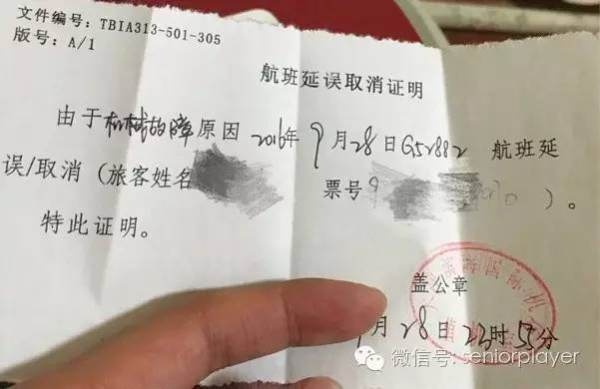 文件编号：TBIA313-501-305
版号：A/1
航班延误取消证明
由于机械故障原因 2016年9月28日GS2882 航班延
误/取消（旅客姓名 票号 ）。
特此证明。
盖公章
9月28日23时55分
微信号: seniorplayer